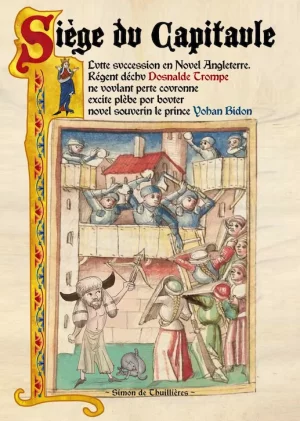 Siège dv Capitavle
Lvtte svccession en Novel Angleterre.
Régent déchv Dosnalde Trompe
ne vovlant perte covronne
excite plèbe por bovter
novel sovverin le prince Yohan Bidon
~ Simon de Thuillières ~